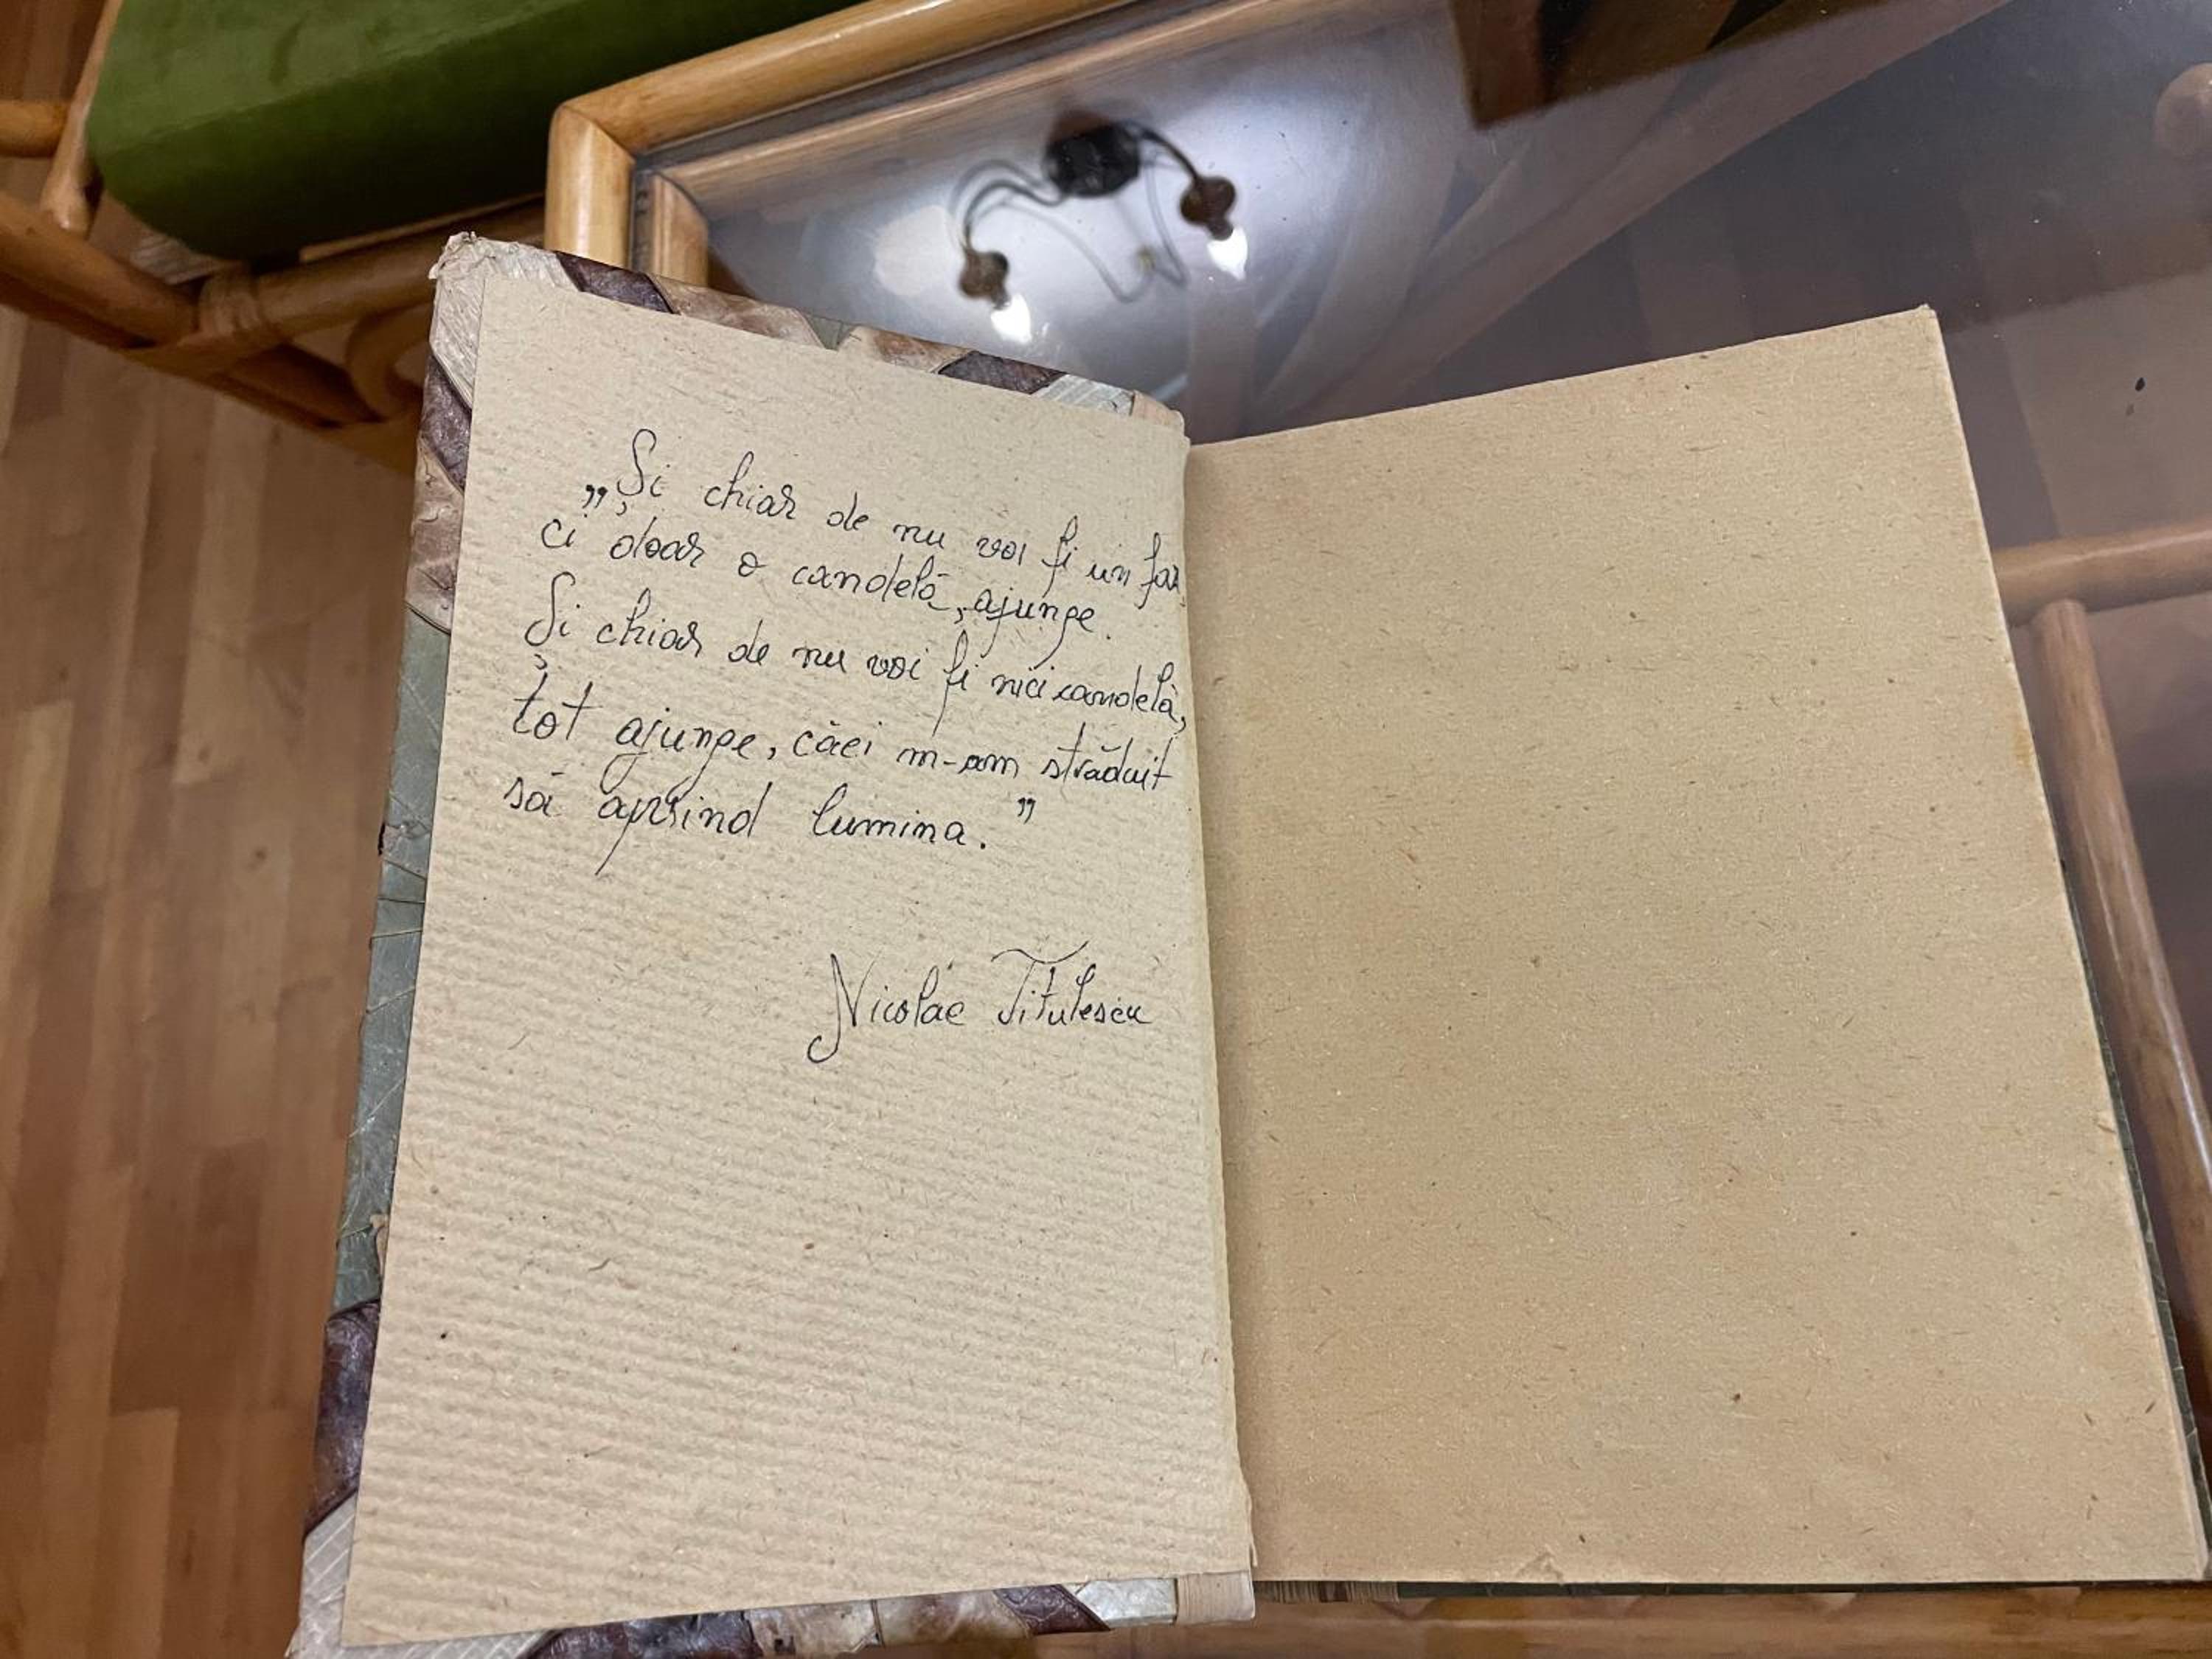 „Și chiar de nu voi fi un far,
ci doar o candelă, ajunge.
Și chiar de nu voi fi nici candelă,
tot ajunge, căci m-am străduit
să aprind lumina.”
Nicolae Titulescu